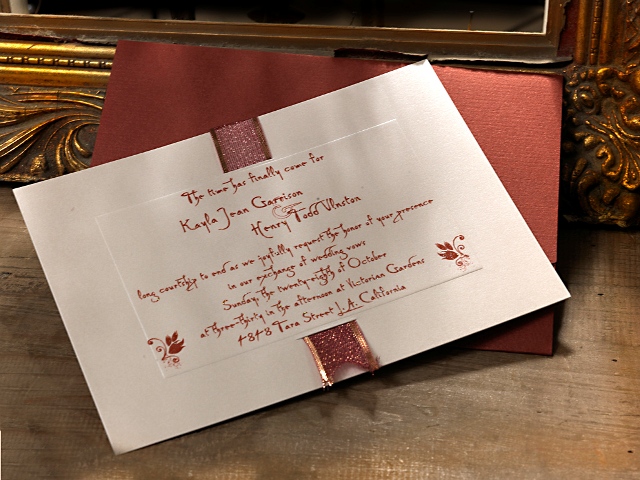 The time has finally come for
Kayla Jean Garrison
&
Henry Todd Vinston
long courtship to end as we joyfully request the honor of your presence
in our exchange of wedding vows
Sunday, the twenty-eighth of October
at three-thirty in the afternoon at Victorian Gardens
4848 Tara Street L.A. California